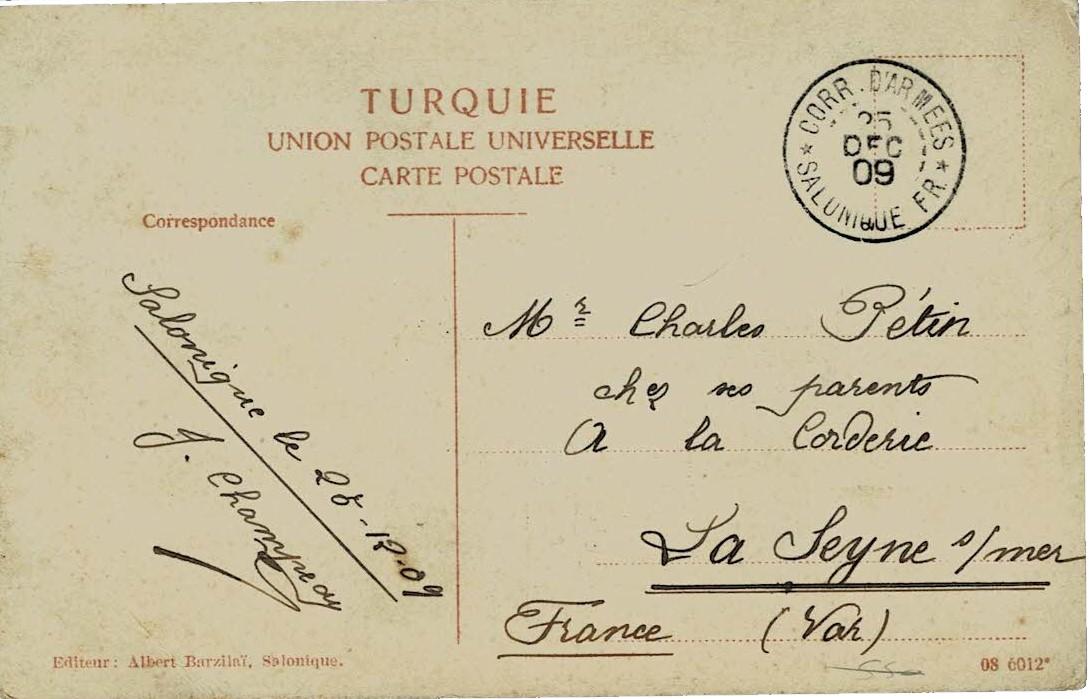 TURQUIE
UNION POSTALE UNIVERSELLE
CARTE POSTALE
* CORR. D'ARMEES *
SALONIQUE FR.
25
DEC
09
Correspondance
Salonique le 25-12-09
J.
Mr Charles Pétin
chez ses parents
A la Corderie
La Seyne s/mer
France (Var)
Editeur: Albert Barzilaï, Salonique.
08 6012*